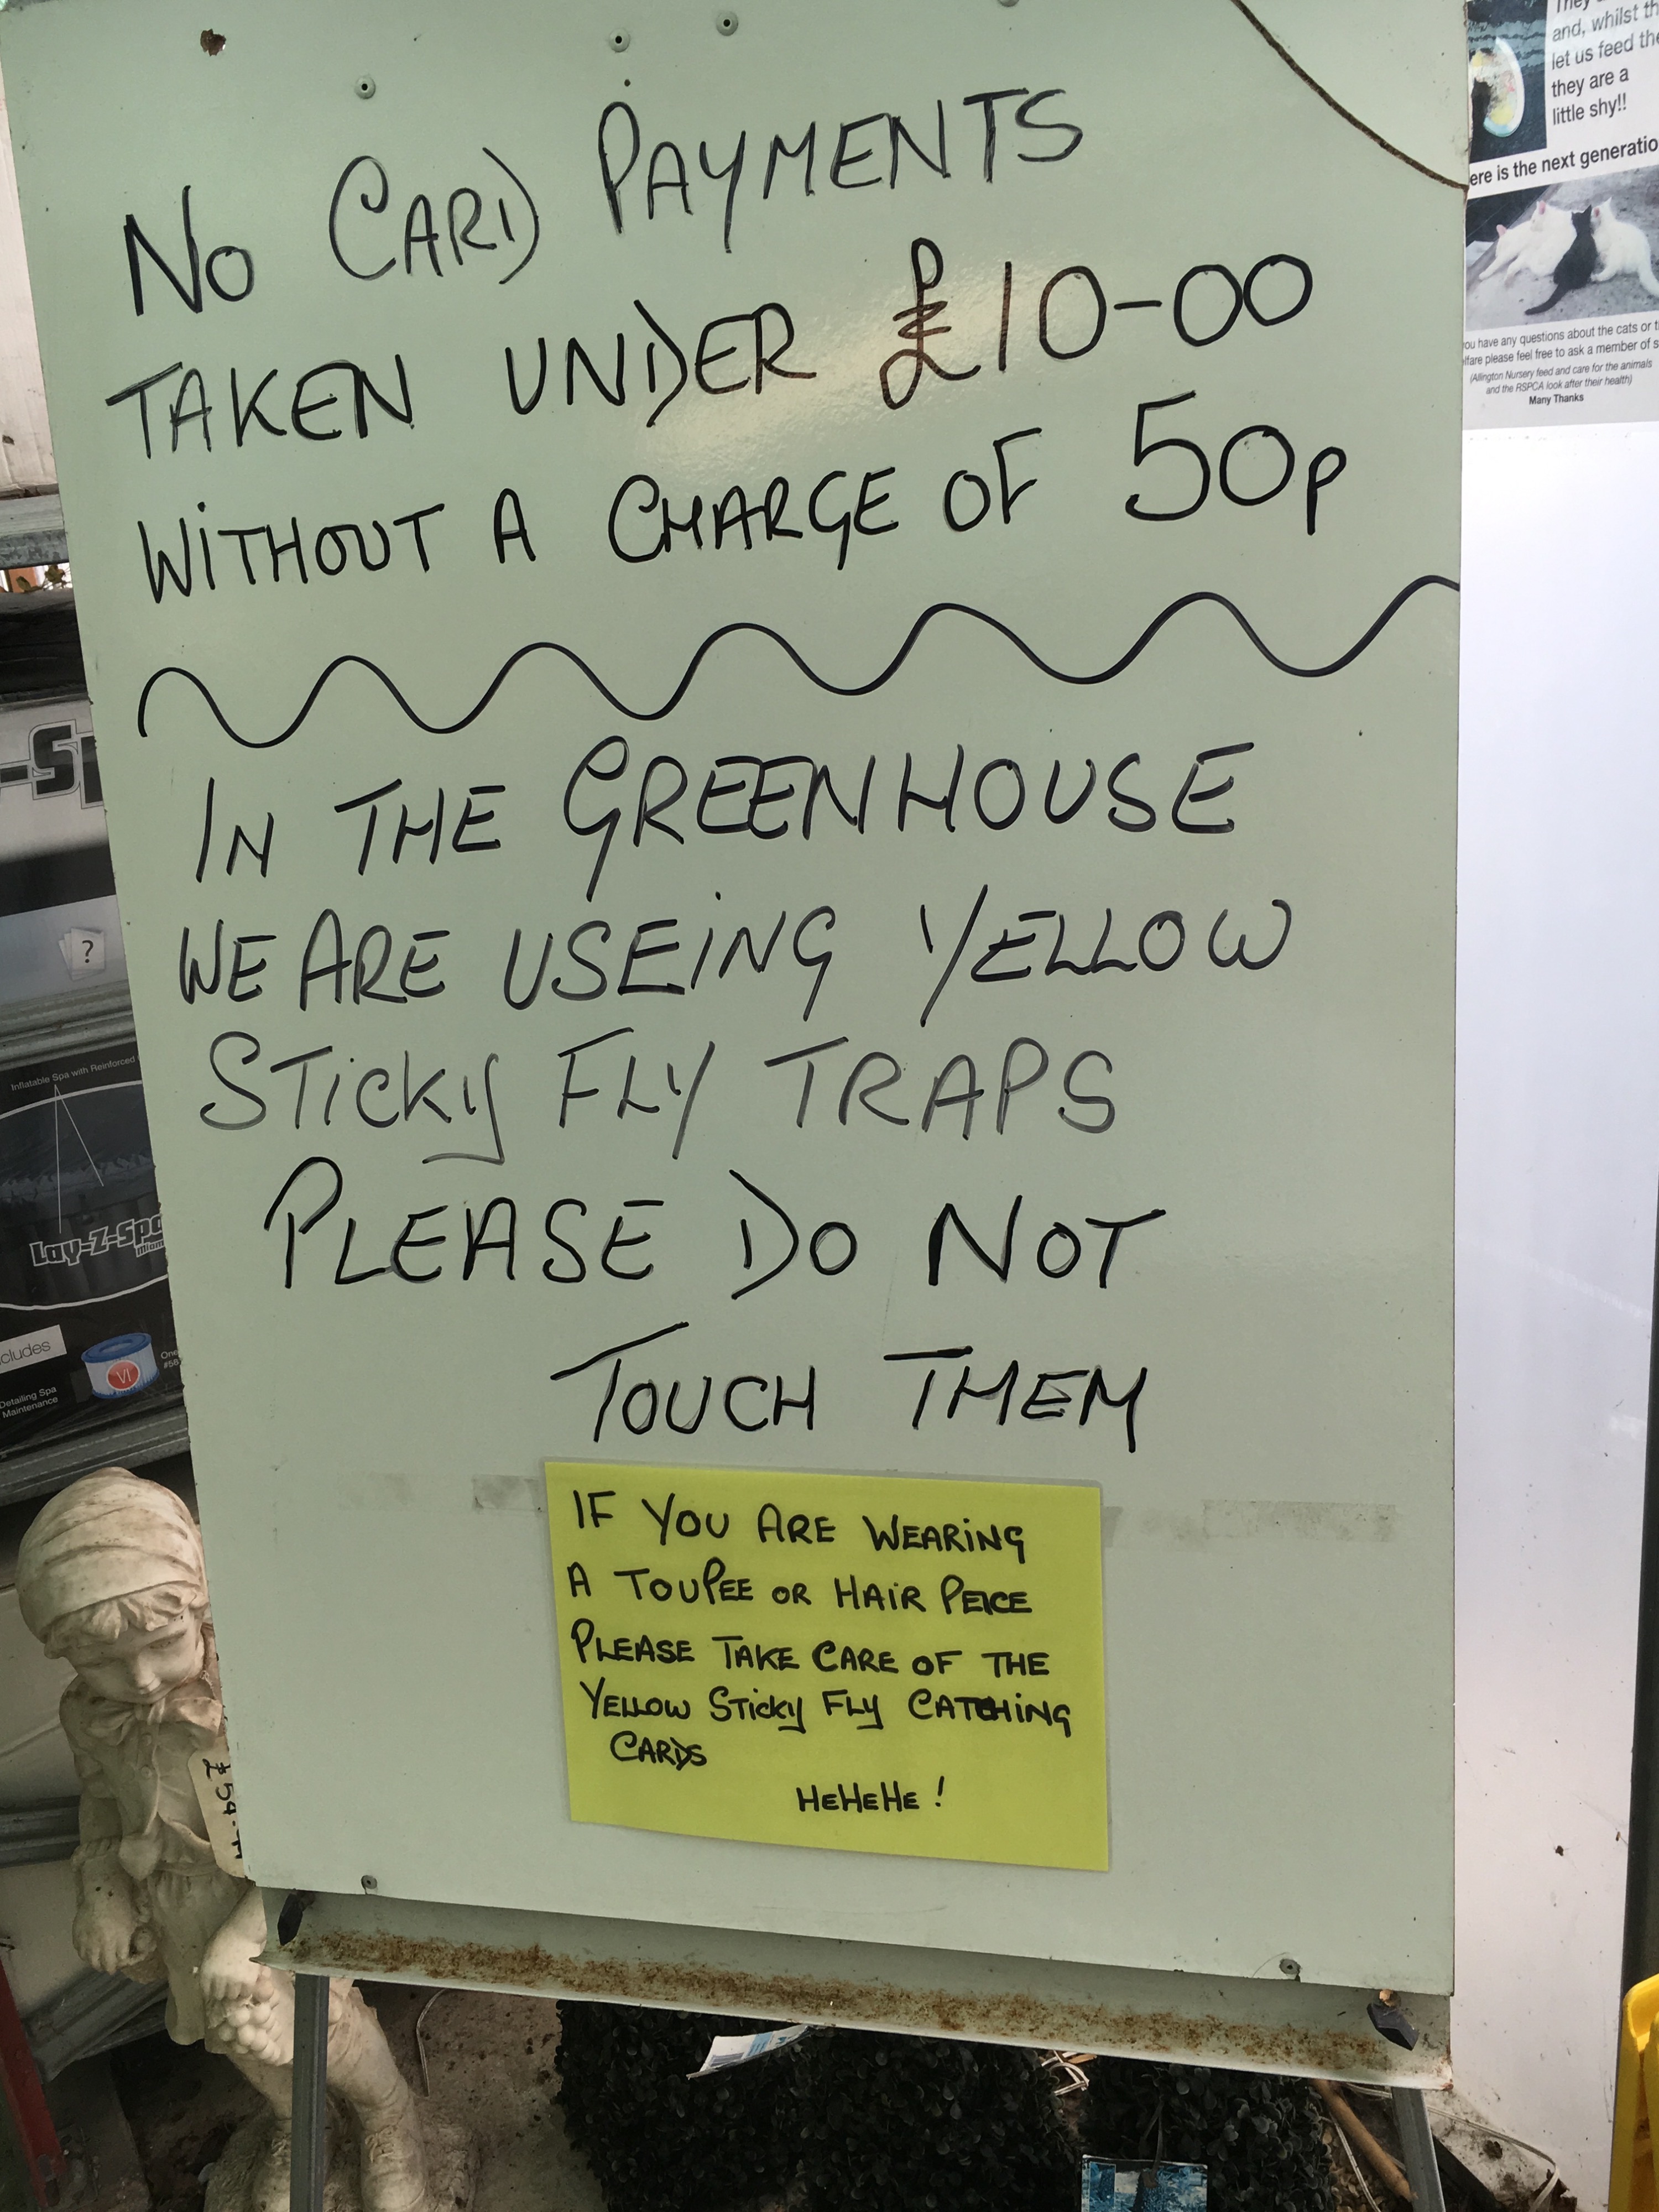 No CARD PAYMENTS
TAKEN UNDER £10-00
WiTHOUT A CHARGE OF 50p
IN THE GREENHOUSE
WE ARE USEiNG YELLOW
STicky FLY TRAPS
PLEASE DO NOT
TOUCH THEM
IF YOU ARE WEARiNG
A TOUPEE OR HAiR PEICE
PLEASE TAKE CARE OF THE
YELLOW STicky FLy CATCHiNG
CARDS
HeHeHe!
and, whilst
let us feed
they are a
little shy!!
is the next
have any questions about the cats or
please feel free to ask a member of
(Allington Nursery feed and care for the animals
and the RSPCA look after their health)
Many Thanks
?
Inflatable Spa with Reinforced
Lay-Z-Spa
Miami
VI
One
Detailing Spa
Maintenance